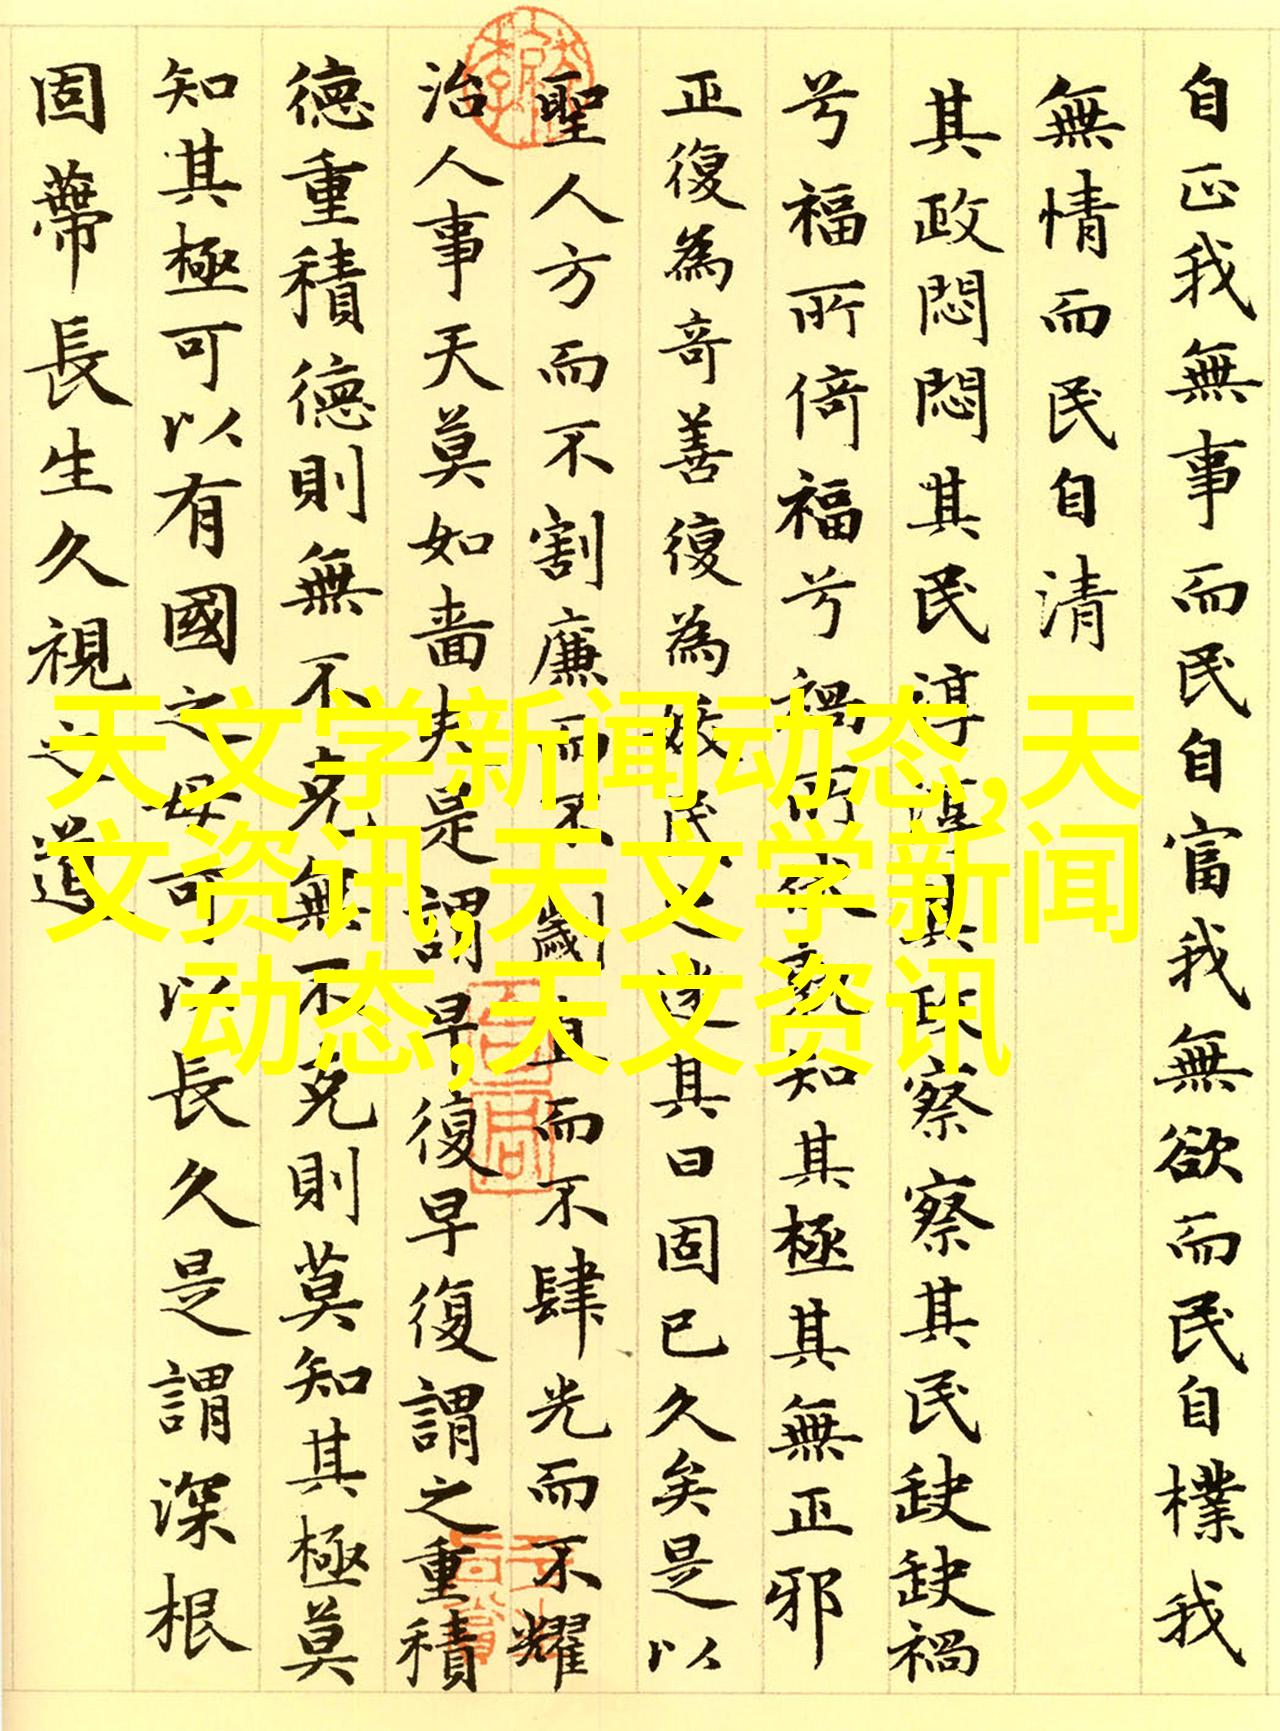 自正我無事而民自富我無欲而民自樸我
無情而民自清
其政悶悶其民淳淳其政察察其民缺缺禍
兮福所倚福兮禍所伏孰知其極其無正邪
正復為奇善復為民之迷其日固已久矣是以
聖人方而不割廉而不劌直而不肆光而不耀
治人事天莫如嗇夫是謂早復早復謂之重積
德重積德則無不克無不克則莫知其極莫
知其極可以有國之母可以長久是謂深根
固蔕長生久視之道
天文学新闻动态,天
文资讯,天文学新闻
动态,天文资讯